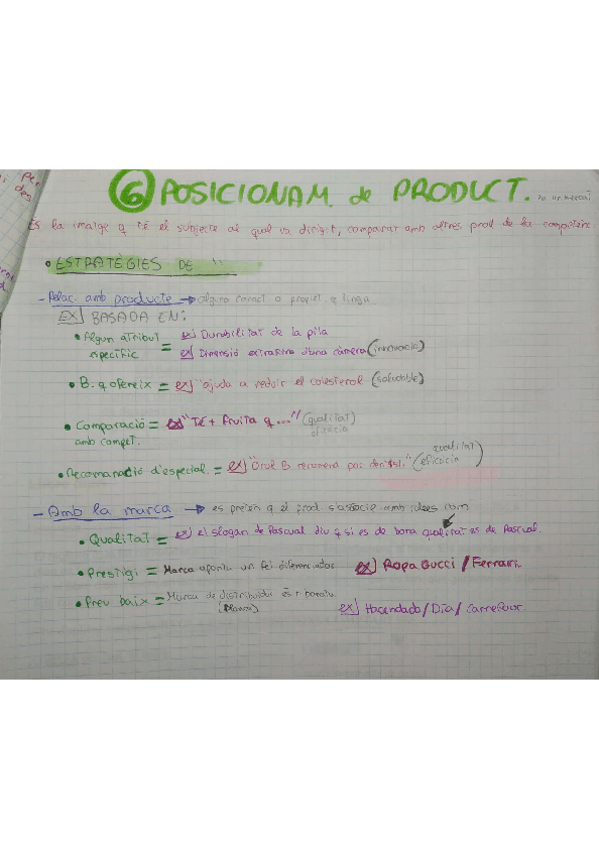 6 POSICIONAM. de PRODUCT.
Es la imatge q TÉ el subjecte al qual va dirigit, comparat amb altres prod de la competènc.
• ESTRATÈGIES DE "
- Relac. amb producte → alguna caract o propiet. q tingui
EX] BASADA EN:
• Algun atribut específic = ex] Durabilitat de la pila
ex] Dimensió extrafina d'una càmera (innovació)
• B. q ofereix = ex] "ajuda a reduir el colesterol (saludable)
• Comparació amb compet. = ex] "TÉ + fruita q ..." (qualitat)
• Recomanació d'especial. = ex] "Oral B recomana pa. dentist." (eficàcia qualitat)
- Amb la marca → es pretén q el prod s'associe amb idees com
• Qualitat = ex] el slogan de Pascual diu q si es de bona qualitat es de Pascual.
• Prestigi = Marca aporta un fet diferenciador ex] Ropa Gucci / Ferrari.
• Preu baix = Marca de distribuidor és + baratu (blanca) ex] Hacendado / Dia / Carrefour